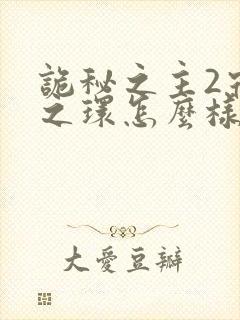 詭秘之主2宿
之環怎麼樣
大愛豆瓣